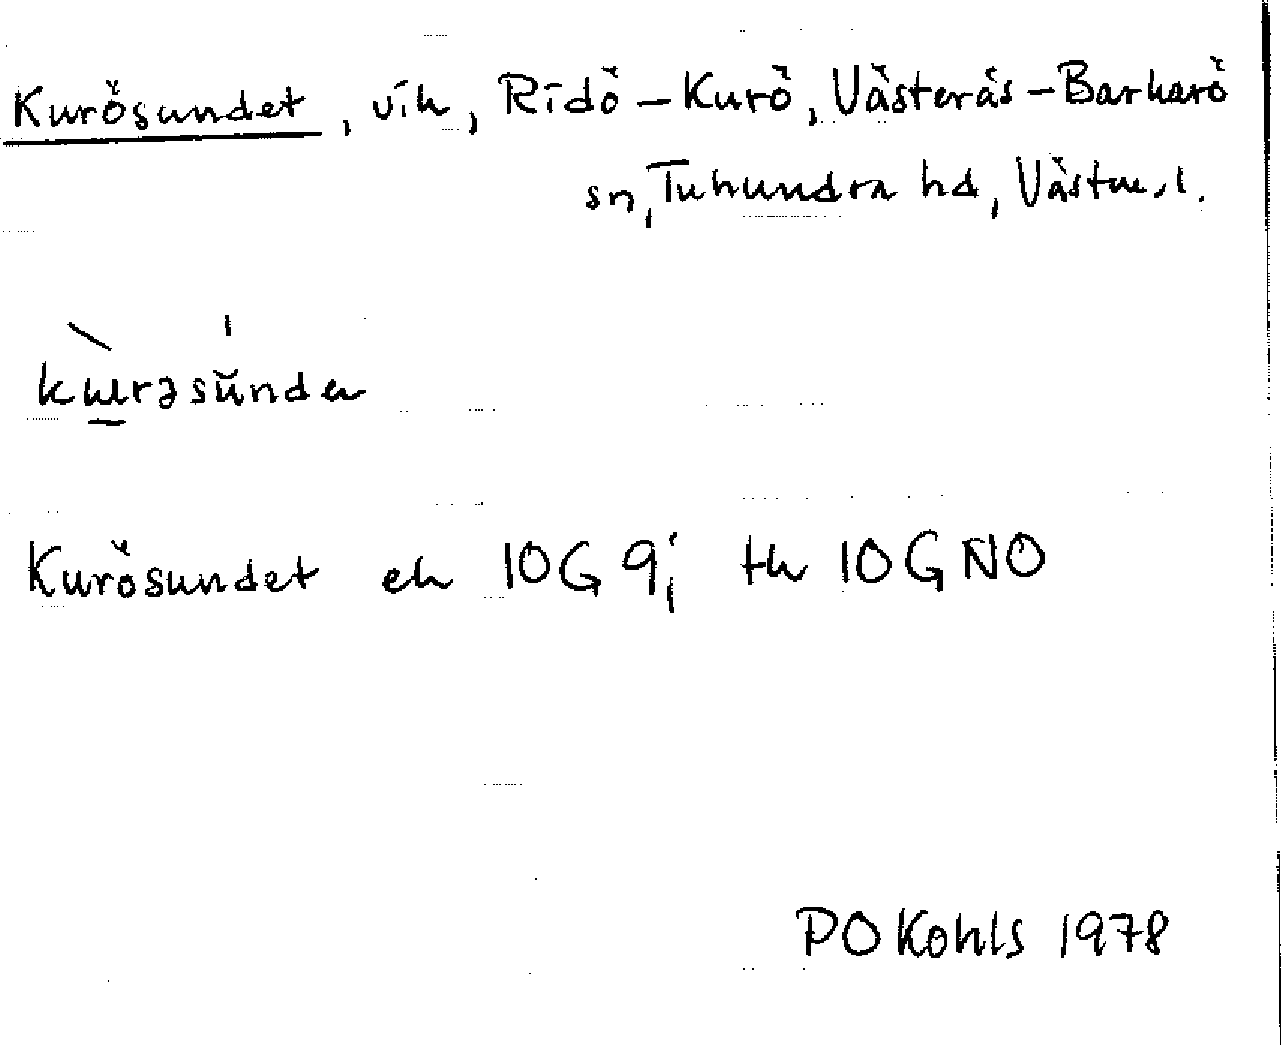 Kurösundet, vik, Ridö-Kurö, Västerås-Barkarö
sn, Tuhundra hd, Västm. l.
Kurösundet ek 10G 9i tk 10G NO
PO Kohls 1978